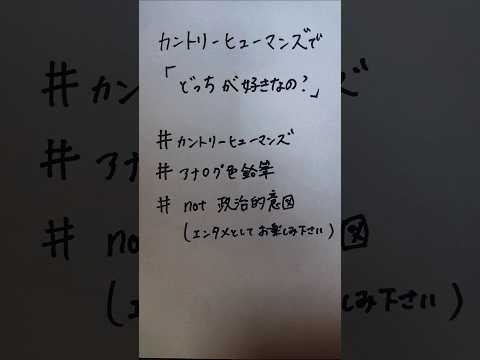 カントリーヒューマンズで
「どっちが好きなの?」
#カントリーヒューマンズ
#アナログ色鉛筆
#not 政治的意図
(エンタメとしてお楽しみ下さい)